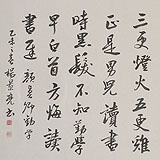 三更燈火五更雞
正是男兒讀書
時黑髮不知勤學
早白首方悔讀
書遲 顏真卿勸學
乙未 楊 書